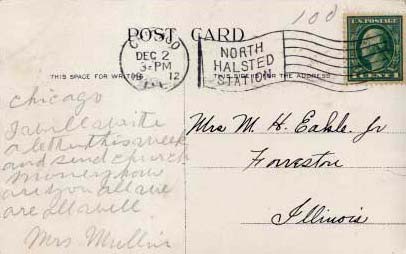 100
POST CARD
CHICAGO
DEC 2
3-PM
1912
NORTH
HALSTED
STATION
U.S. POSTAGE
1 CENT 1
THIS SPACE FOR WRITING
THE ADDRESS
Chicago
I will write
a letter this week
and send church
money how
are you all we
are all well
Mrs Mullin
Mrs M. H. Eakle. Jr
Forreston
Illinois